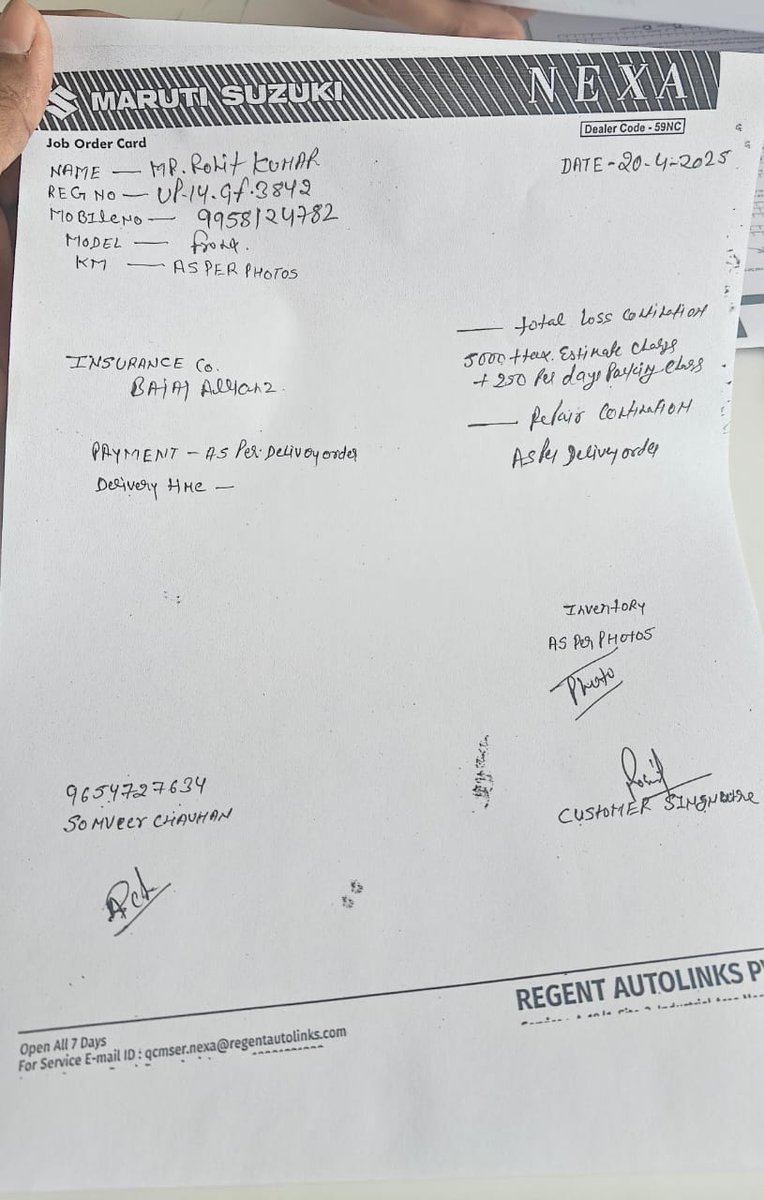 MARUTI SUZUKI
NEXA
Job Order Card
Dealer Code - 59NC
NAME — MR. Rohit KUMAR
DATE - 20-4-2025
REG NO — UP.14.Gf.3842
MOBILE NO — 9958124782
MODEL — fronx.
KM — AS PER PHOTOS
— total Loss Contination
5000 + tax. Estimate Charges
+ 250 Per days Parking
INSURANCE Co.
BAJAJ Allianz.
— Repair CONTINATION
As Per Delivery order
PAYMENT - AS Per Delivoy order
Delivery time —
INVENTORY
AS Per PHOTOS
Photo
9654727634
SOMVeer CHAUHAN
Rohit
CUSTOMER
REGENT AUTOLINKS
Open All 7 Days
For Service E-mail ID : qcmser.nexa@regentautolinks.com